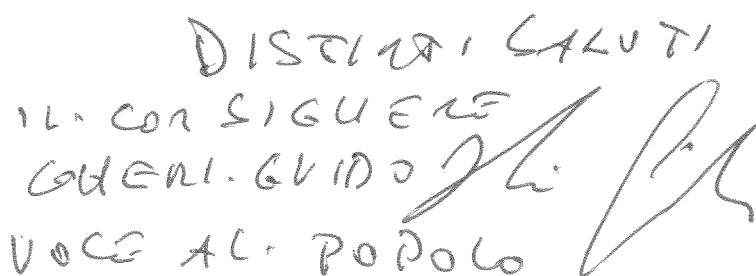 DISTINTI SALUTI
IL. CONSIGLIERE
GUERI. GUIDO
VOCE AL. POPOLO